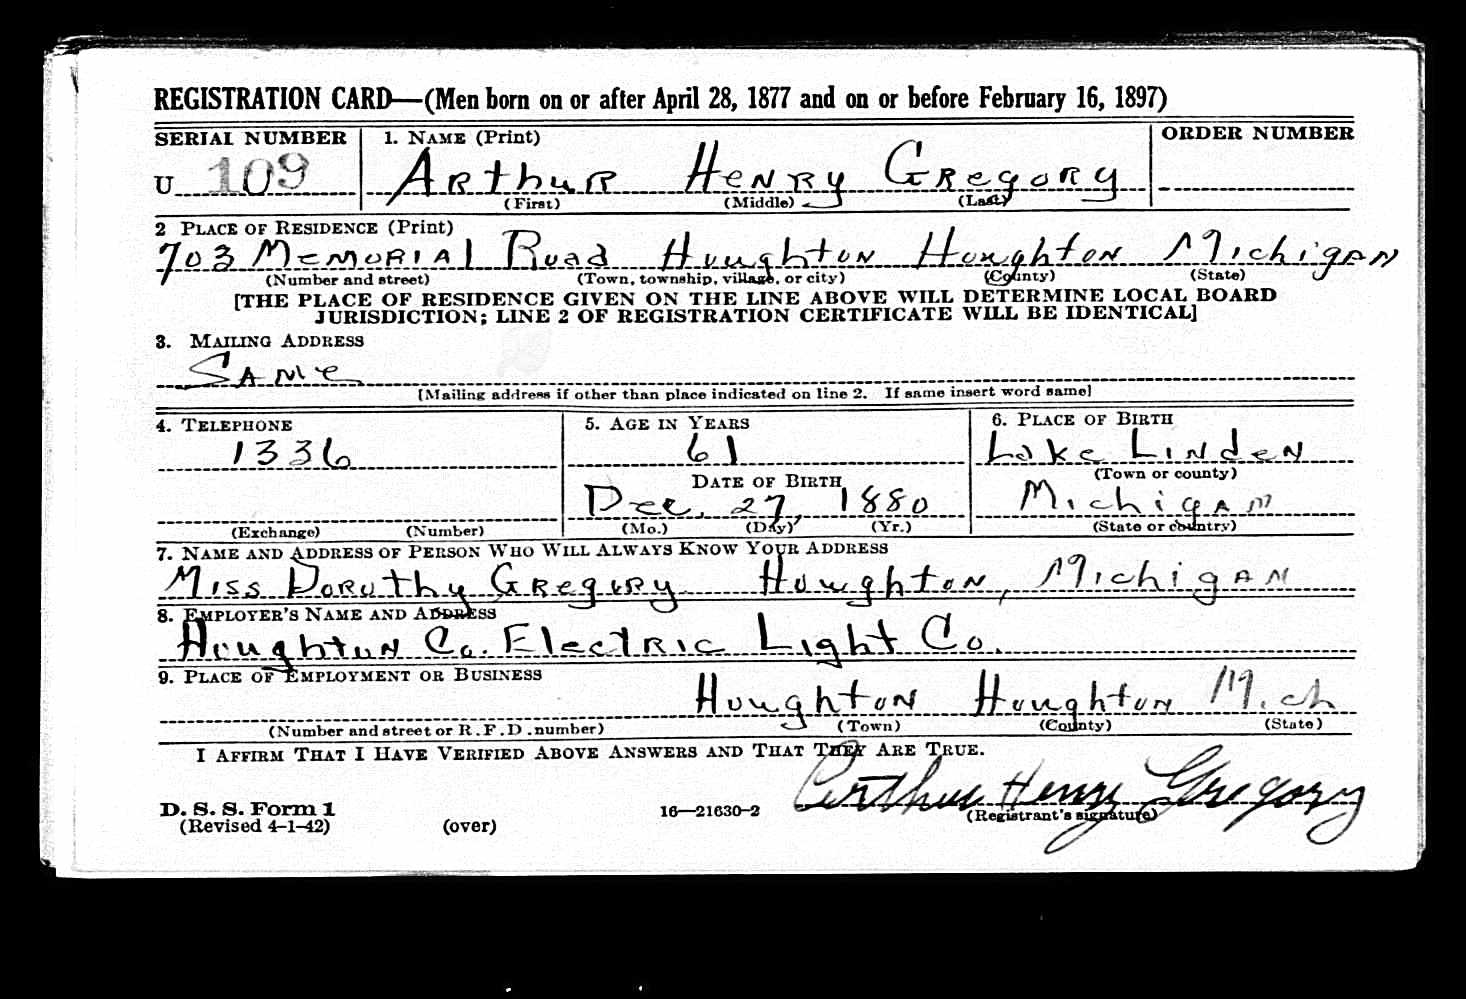 REGISTRATION CARD—(Men born on or after April 28, 1877 and on or before February 16, 1897)
SERIAL NUMBER 1. NAME (Print) ORDER NUMBER
U 109 Arthur Henry Gregory
(First) (Middle) (Last)
2 PLACE OF RESIDENCE (Print)
703 Memorial Road Houghton Houghton Michigan
(Number and street) (Town, township, village, or city) (County) (State)
[THE PLACE OF RESIDENCE GIVEN ON THE LINE ABOVE WILL DETERMINE LOCAL BOARD
JURISDICTION; LINE 2 OF REGISTRATION CERTIFICATE WILL BE IDENTICAL]
3. MAILING ADDRESS
Same
[Mailing address if other than place indicated on line 2. If same insert word same]
4. TELEPHONE 5. AGE IN YEARS 6. PLACE OF BIRTH
1336 61 Lake Linden
DATE OF BIRTH (Town or county)
Dec. 27, 1880 Michigan
(Exchange) (Number) (Mo.) (Day) (Yr.) (State or country)
7. NAME AND ADDRESS OF PERSON WHO WILL ALWAYS KNOW YOUR ADDRESS
Miss Dorothy Gregory Houghton, Michigan
8. EMPLOYER'S NAME AND ADDRESS
Houghton Co. Electric Light Co.
9. PLACE OF EMPLOYMENT OR BUSINESS
Houghton Houghton Mich
(Number and street or R.F.D. number) (Town) (County) (State)
I AFFIRM THAT I HAVE VERIFIED ABOVE ANSWERS AND THAT THEY ARE TRUE.
Arthur Henry Gregory
D. S. S. Form 1 16—21630-2 (Registrant's signature)
(Revised 4-1-42) (over)